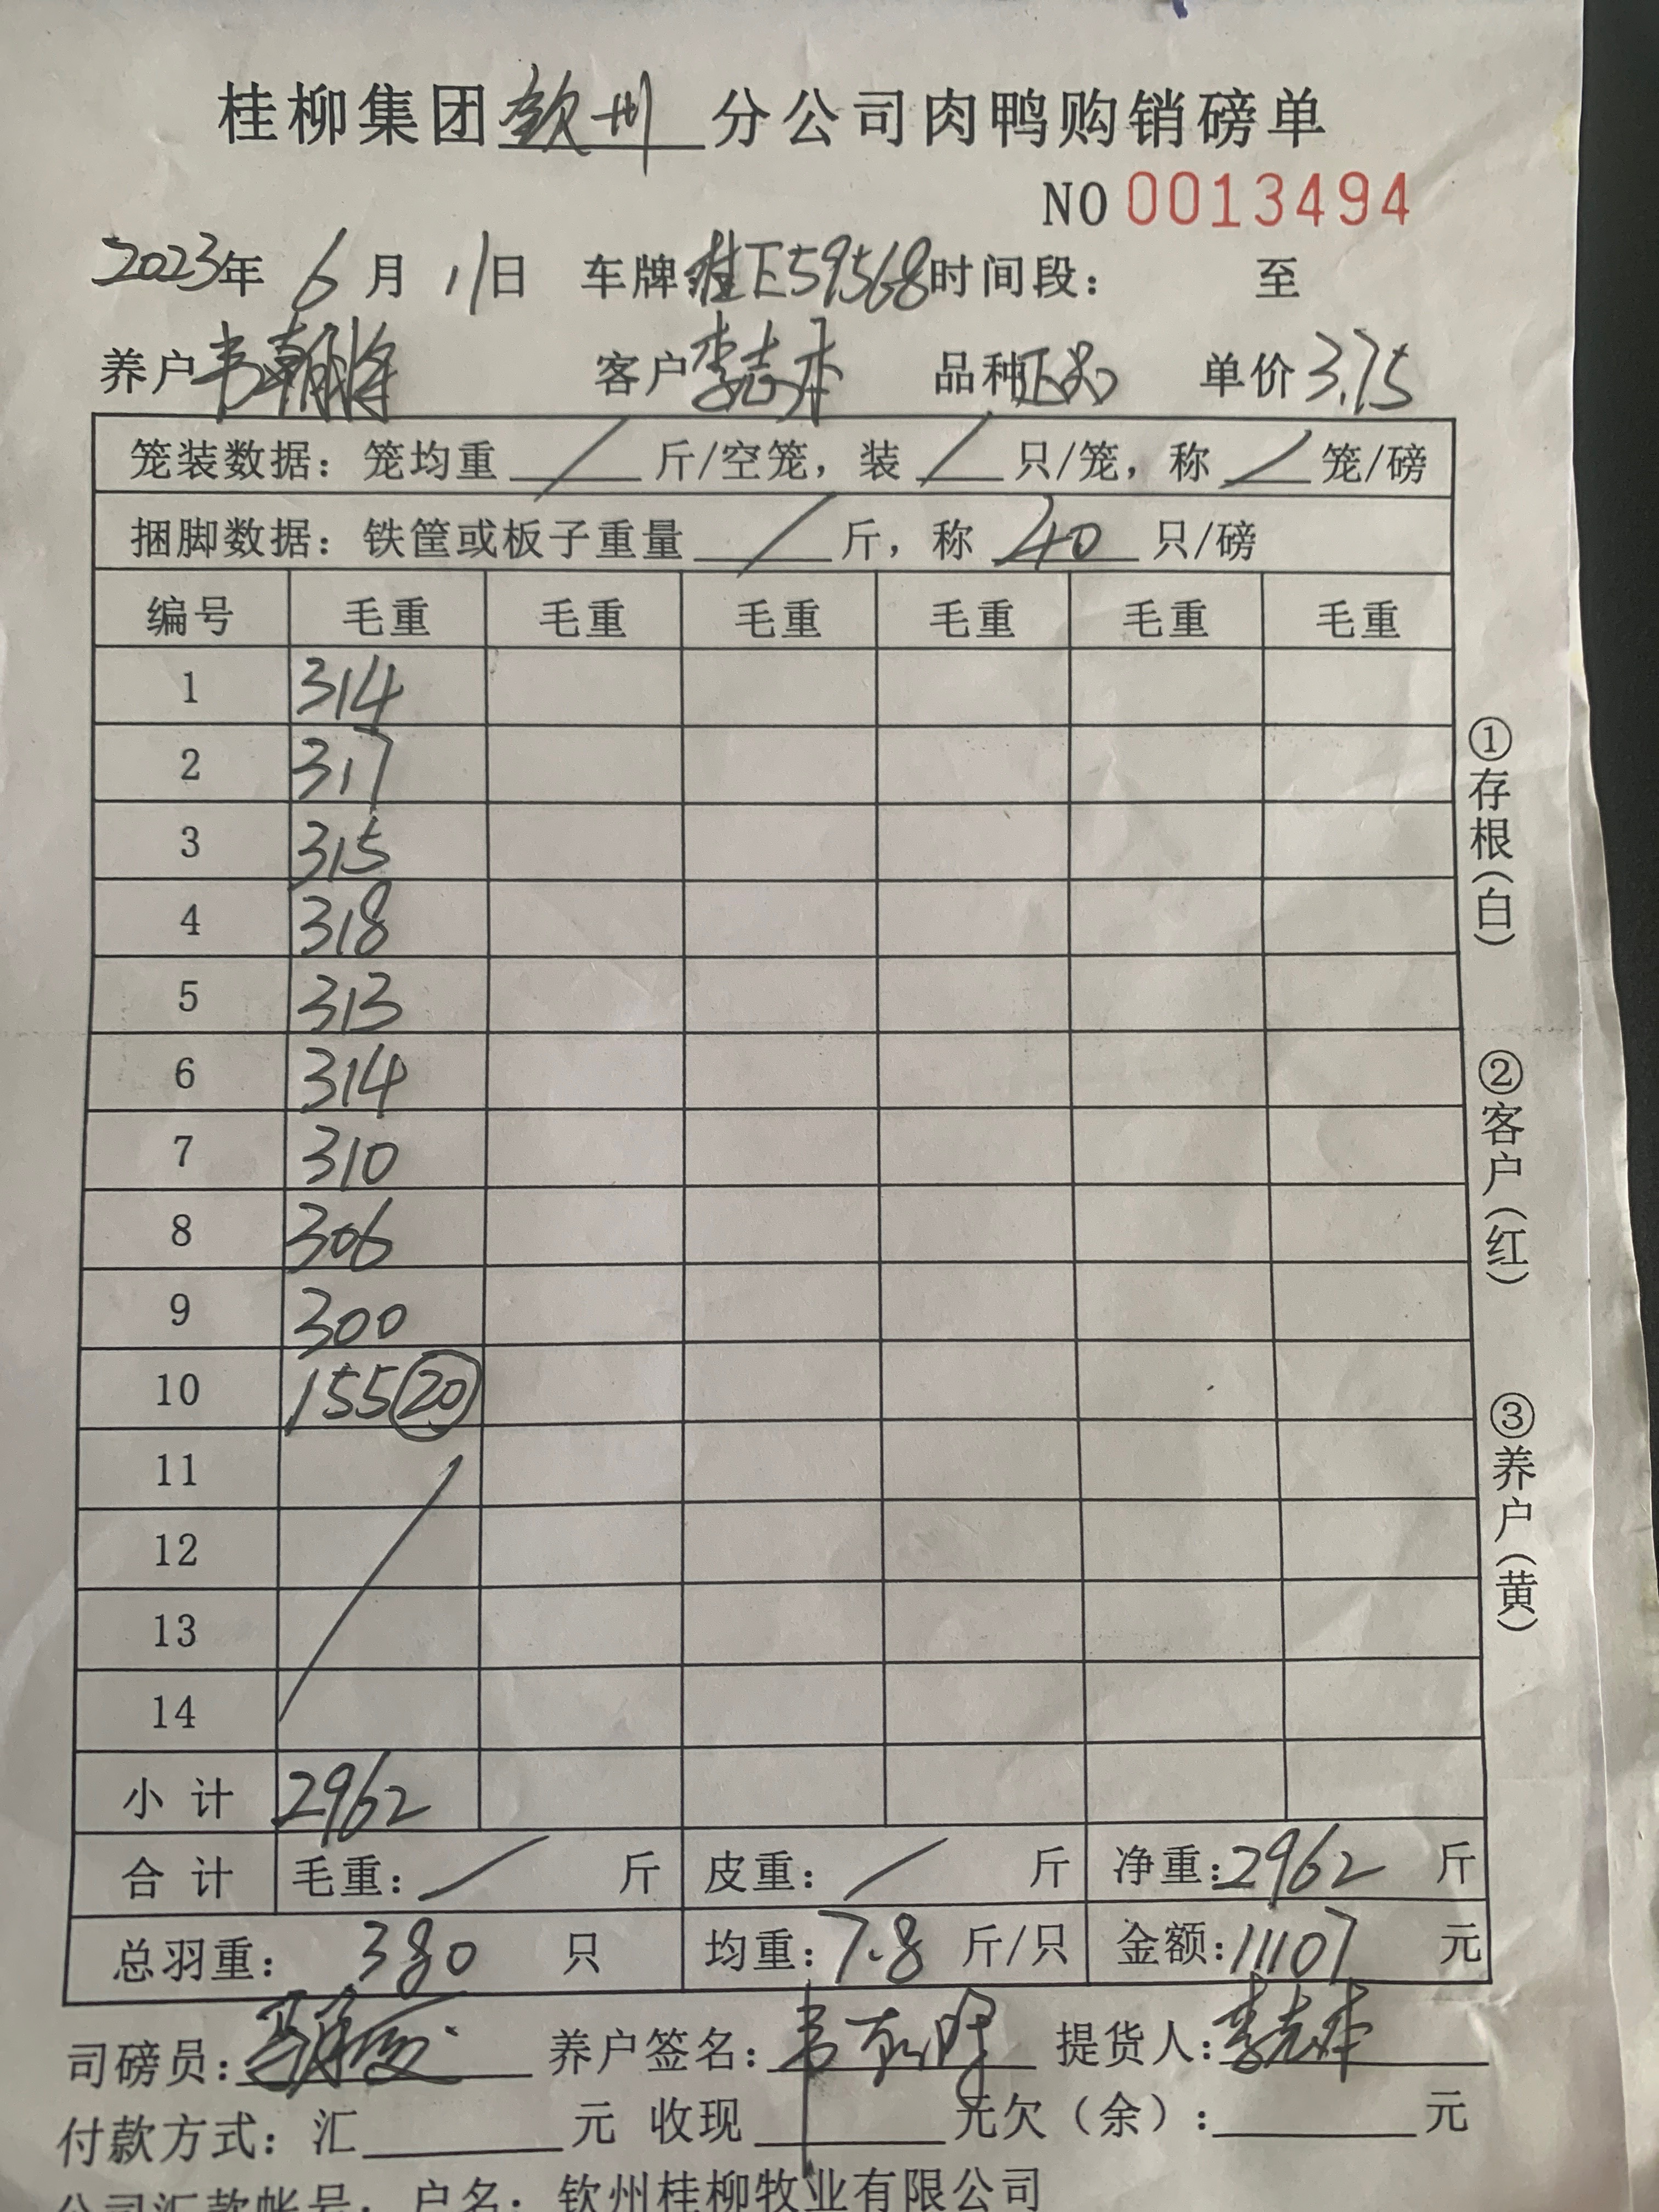 桂柳集团钦州分公司肉鸭购销磅单
NO 0013494
2023年 6 月 11日 车牌:桂E59568时间段: 至
养户韦朝将 客户李志本 品种正品 单价3.75
笼装数据: 笼均重 / 斤/空笼, 装 / 只/笼, 称 / 笼/磅
捆脚数据: 铁筐或板子重量 / 斤, 称 40 只/磅
编号 毛重 毛重 毛重 毛重 毛重 毛重
1 314
2 317
3 315
4 318
5 313
6 314
7 310
8 306
9 300
10 155 20
11
12
13
14
小计 2962
合计 毛重: / 斤 皮重: / 斤 净重:2962 斤
总羽重: 380 只 均重:7.8 斤/只 金额:11107 元
司磅员: 养户签名:韦 提货人:李志本
付款方式: 汇 元 收现 元欠(余): 元
公司汇款帐号: 户名: 钦州桂柳牧业有限公司
①存根(白)
②客户(红)
③养户(黄)